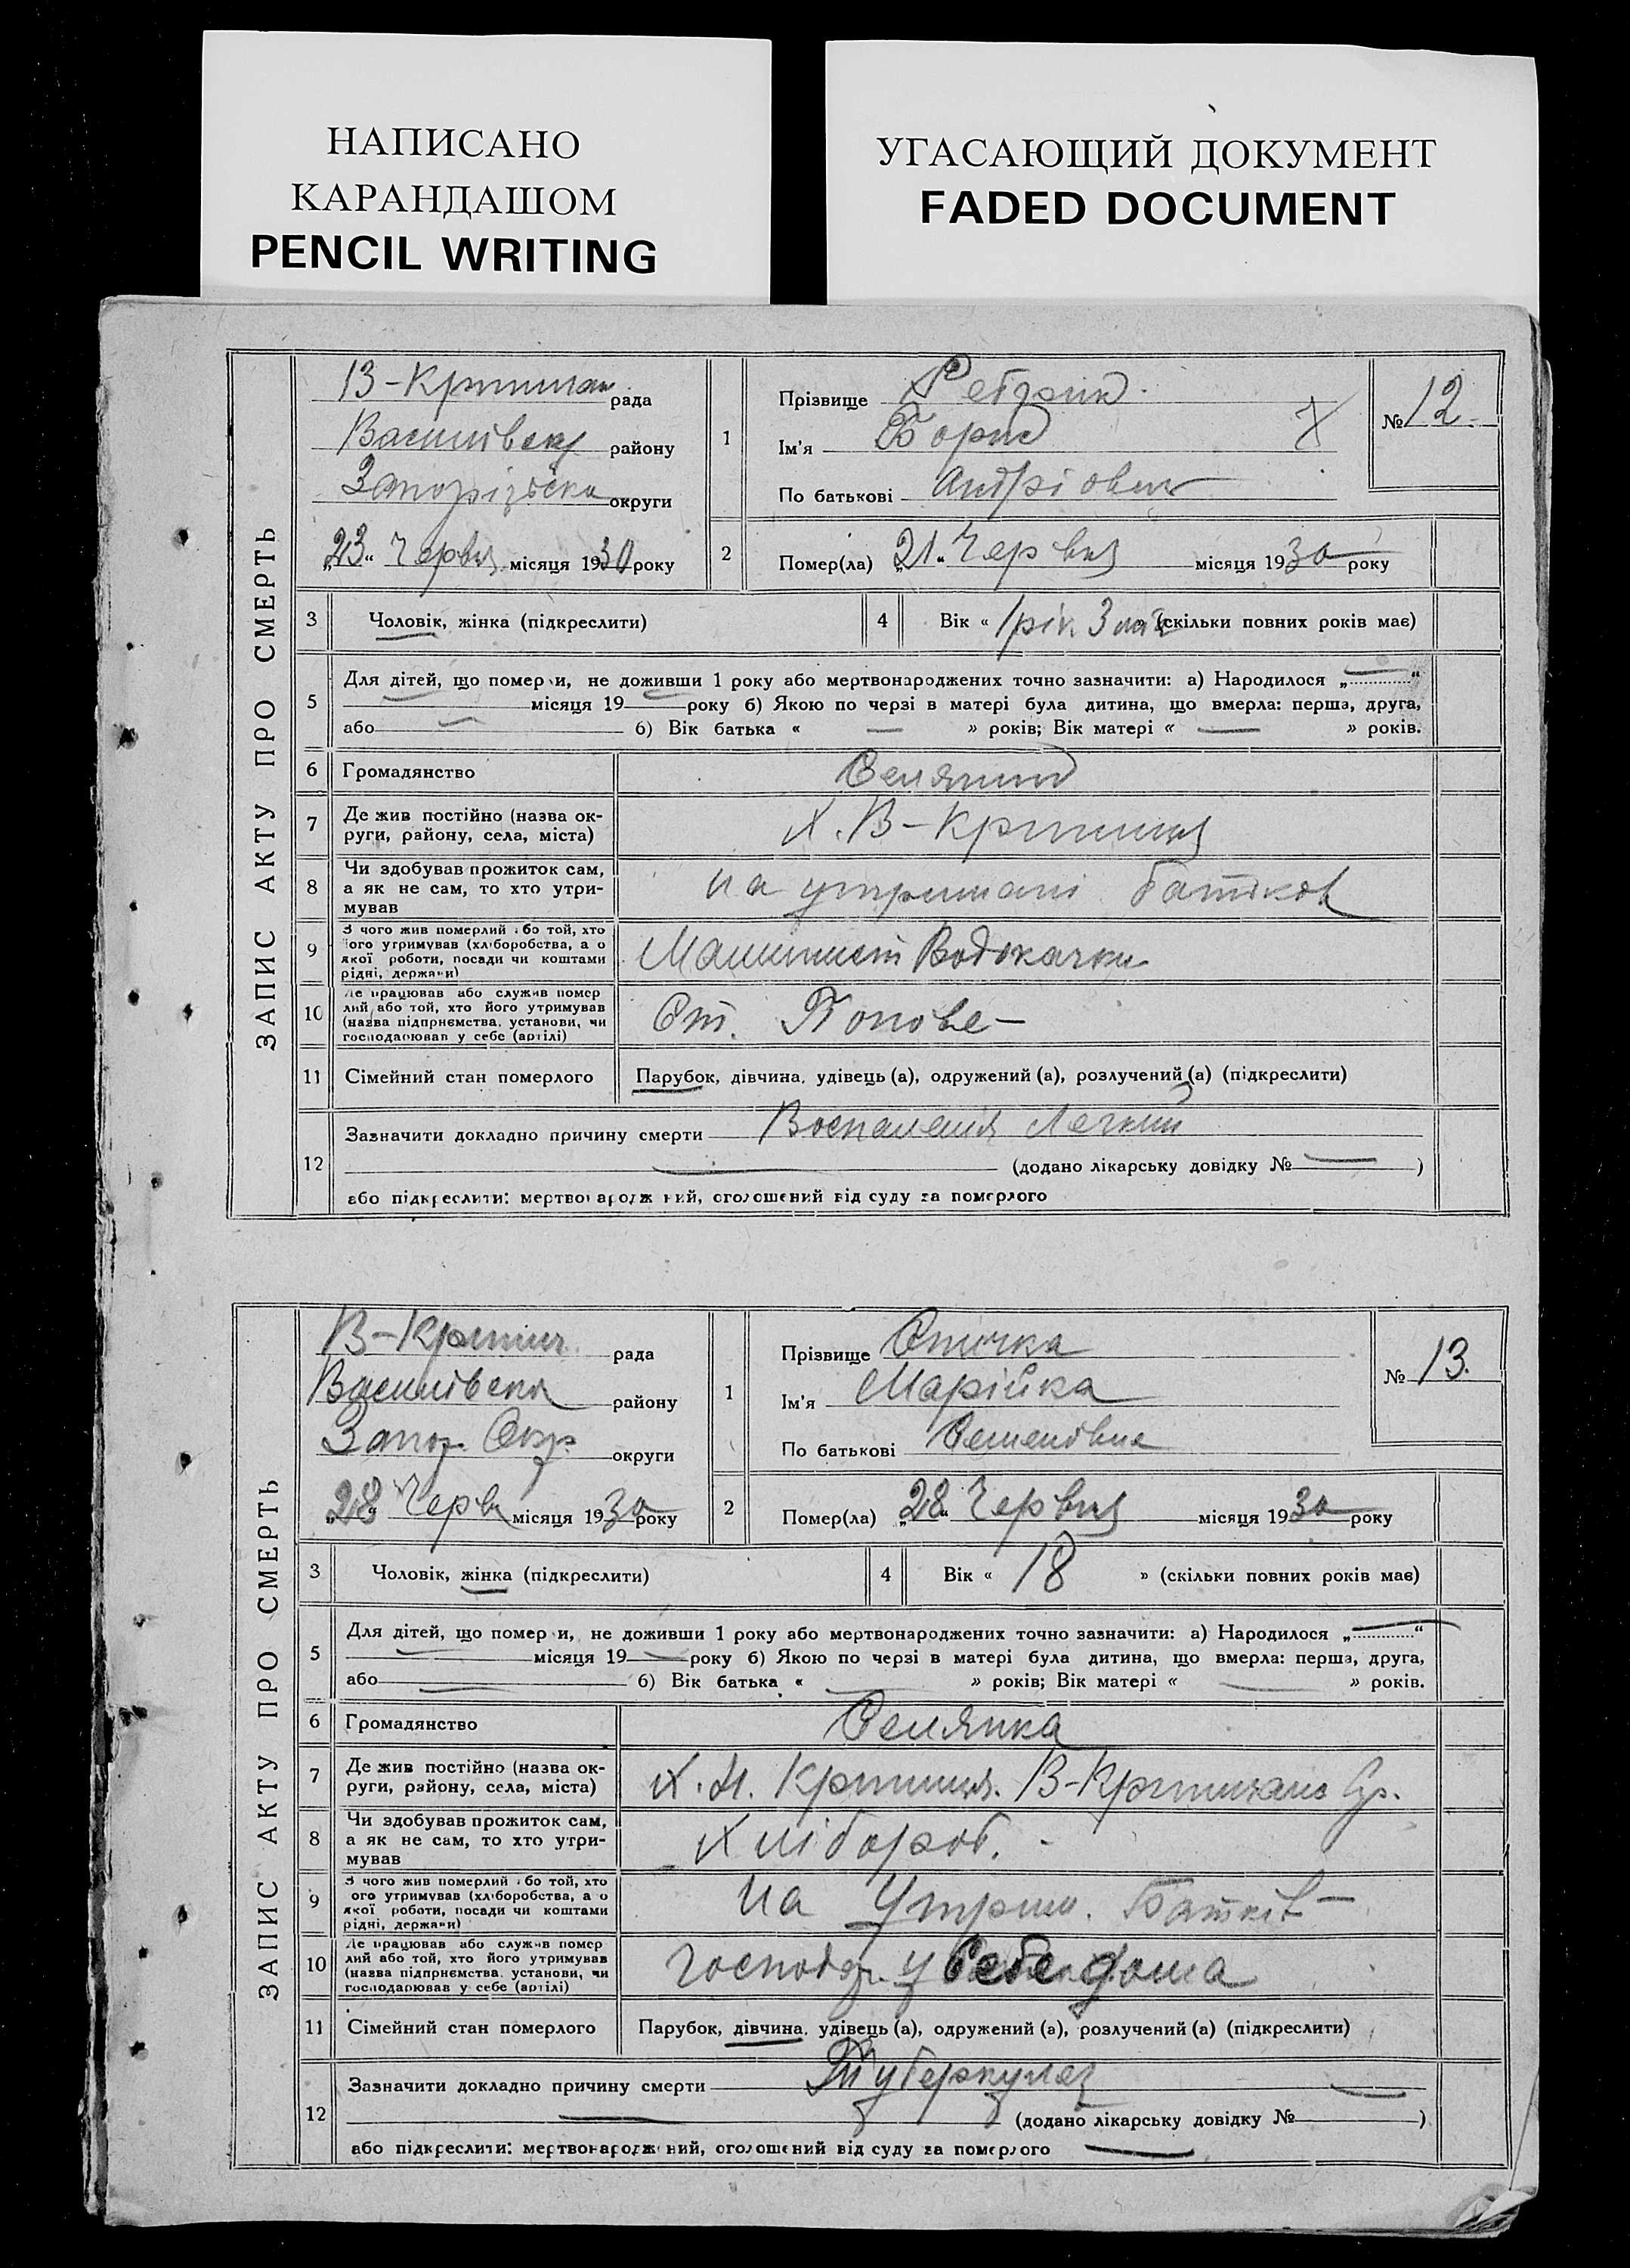 НАПИСАНО
КАРАНДАШОМ
PENCIL WRITING
УГАСАЮЩИЙ ДОКУМЕНТ
FADED DOCUMENT
ЗАПИС АКТУ ПРО СМЕРТЬ
В-Криничан. рада
Василівськ району
Запорізська округи
„23“ Червня місяця 1930 року
1
Прізвище
Ім'я Борис
По батькові Андріович
№ 12.
2 Помер(ла) „21“ Червня місяця 1930 року
3 Чоловік, жінка (підкреслити)
4 Вік « 1 рік 3 міс (скільки повних років має)
5 Для дітей, що померли, не доживши 1 року або мертвонароджених точно зазначити: а) Народилося „ “
місяця 19 року б) Якою по черзі в матері була дитина, що вмерла: перша, друга,
або б) Вік батька « — » років; Вік матері « — » років.
6 Громадянство Селянин
7 Де жив постійно (назва ок-
руги, району, села, міста) Х. В-Криниця
8 Чи здобував прожиток сам,
а як не сам, то хто утри-
мував
на утримані батьков
9 З чого жив померлий або той, хто
його утримував (хліборобства, а о
якої роботи, посади чи коштами
рідні, держави)
Машинист Водокачки
10 Де працював або служив помер
лий або той, хто його утримував
(назва підприємства, установи, чи
господарював у себе (артілі)
Ст. Попове –
11 Сімейний стан померлого Парубок, дівчина, удівець (а), одружений (а), розлучений (а) (підкреслити)
12 Зазначити докладно причину смерти Воспаления Легких
(додано лікарську довідку № — )
або підкреслити: мертвонароджений, оголошений від суду за померлого
ЗАПИС АКТУ ПРО СМЕРТЬ
В-Кринич. рада
Василівська району
Запор. Окр. округи
„28“ Черв місяця 1930 року
1
Прізвище
Ім'я Марійка
По батькові Семеновна
№ 13.
2 Помер(ла) „28“ Червня місяця 1930 року
3 Чоловік, жінка (підкреслити)
4 Вік « 18 » (скільки повних років має)
5 Для дітей, що померли, не доживши 1 року або мертвонароджених точно зазначити: а) Народилося „ “
місяця 19 року б) Якою по черзі в матері була дитина, що вмерла: перша, друга,
або б) Вік батька « » років; Вік матері « » років.
6 Громадянство Селянка
7 Де жив постійно (назва ок-
руги, району, села, міста) Х. М. Криниця. В-Криничанс Ср.
8 Чи здобував прожиток сам,
а як не сам, то хто утри-
мував
Хлібороб.
9 З чого жив померлий або той, хто
його утримував (хліборобства, а о
якої роботи, посади чи коштами
рідні, держави)
на Утрим. Батьків –
10 Де працював або служив помер
лий або той, хто його утримував
(назва підприємства, установи, чи
господарював у себе (артілі)
Господар. у себе дома
11 Сімейний стан померлого Парубок, дівчина, удівець (а), одружений (а), розлучений (а) (підкреслити)
12 Зазначити докладно причину смерти Туберкулез
(додано лікарську довідку № )
або підкреслити: мертвонароджений, оголошений від суду за померлого